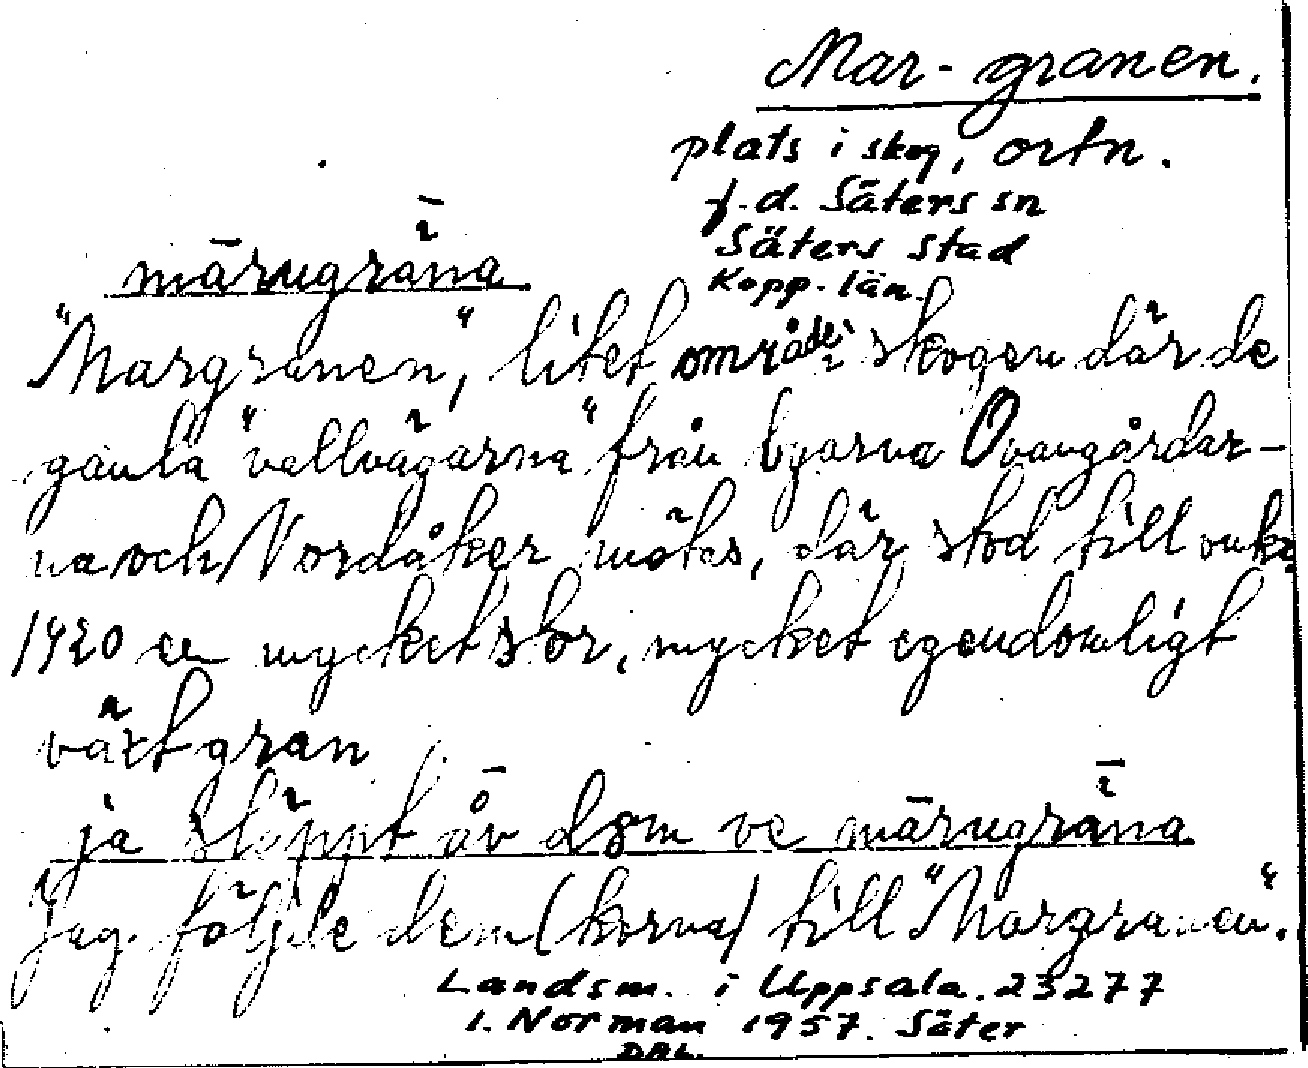 Mar-granen.
plats i skog, ortn.
f.d. Säters sn
Säters stad
Kopp. län.
märugräna
"Margranen", litet område i skogen där de
gamla "vallvägarna" från byarna Ovangårdar-
na och Nordåker mötes, där stod till omkr.
1920 en mycket stor, mycket egendomligt
växt gran
ja släppt åv dȯm ve märugräna
Jag följde dem (korna) till "Margranen".
Landsm. i Uppsala. 23277
I. Norman 1957. Säter
DAL.